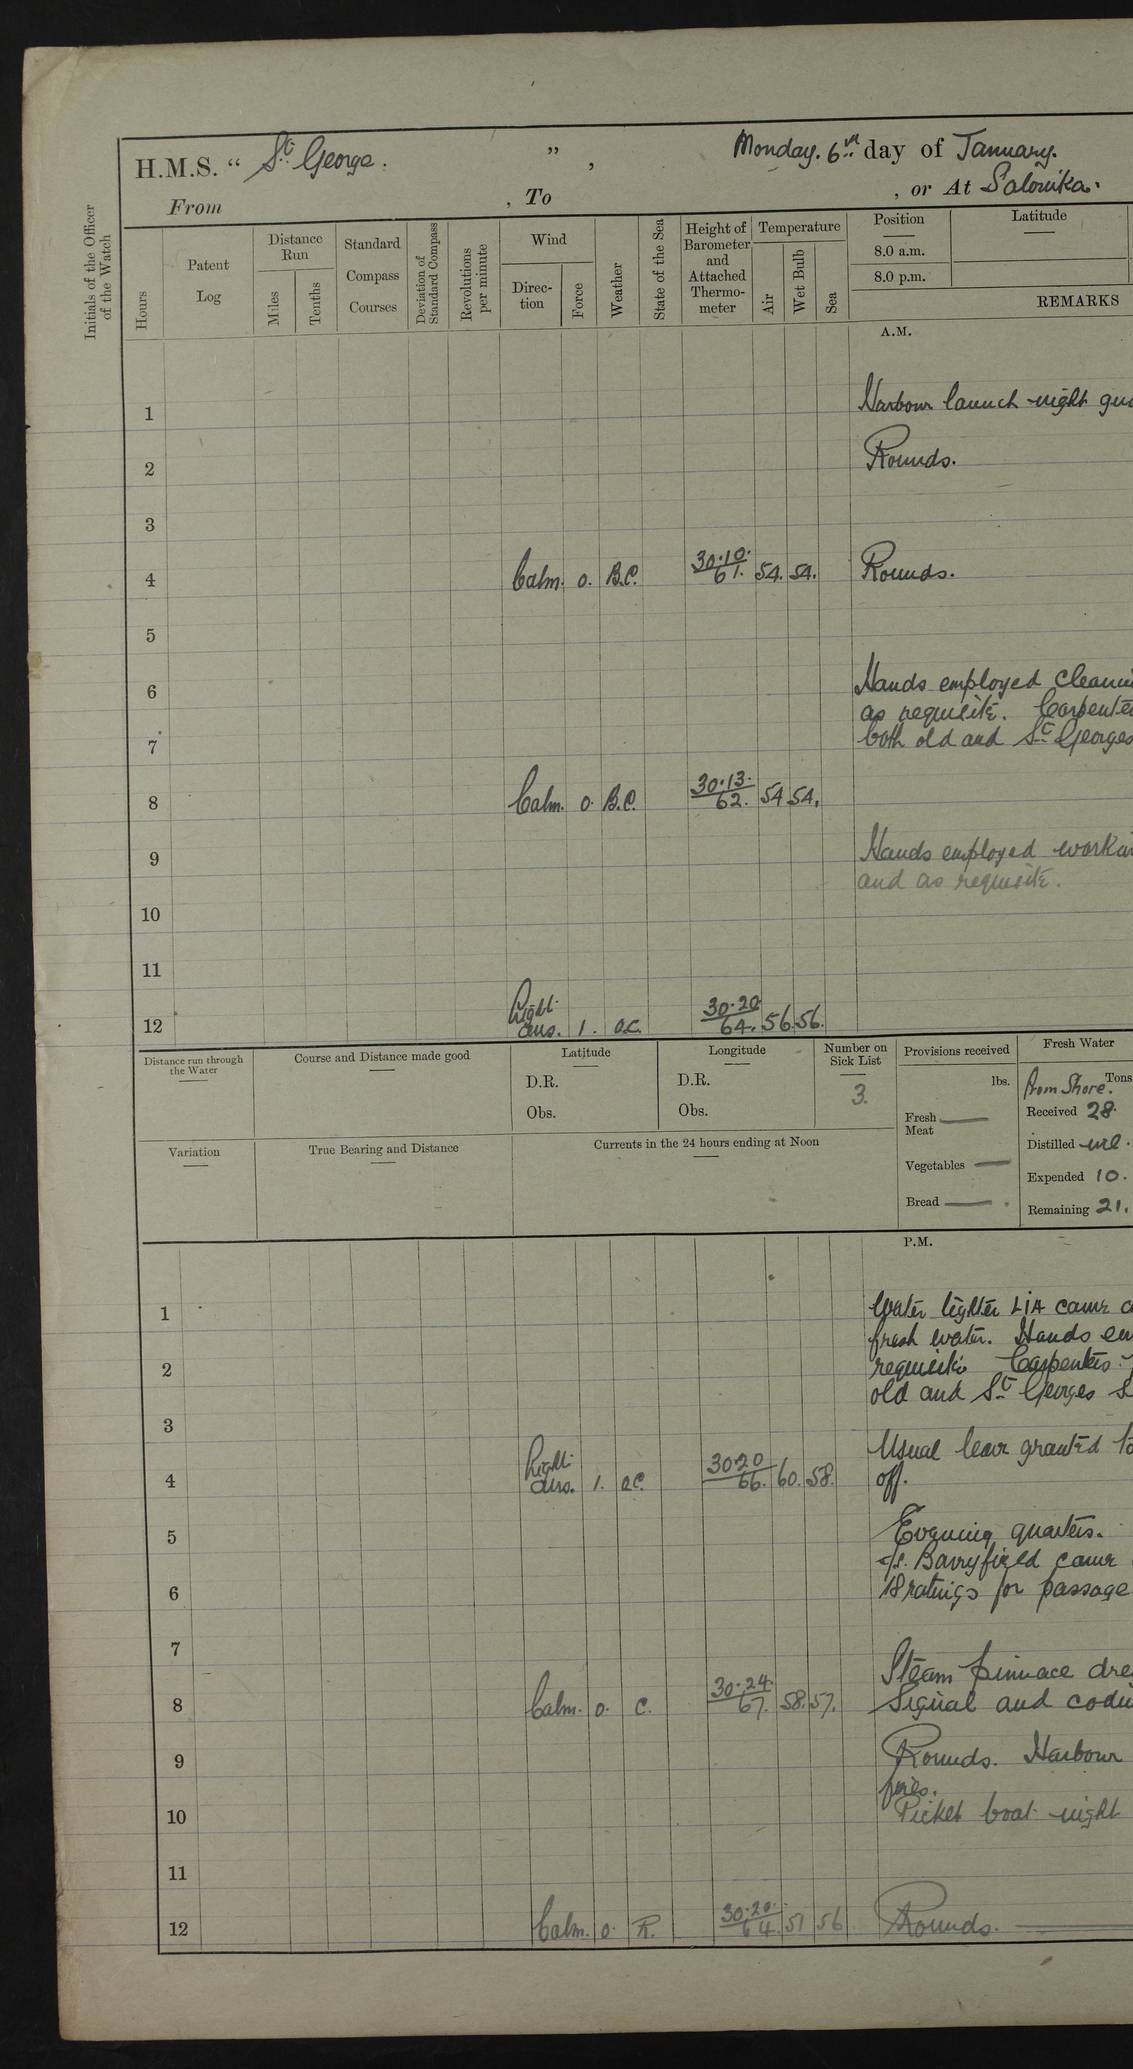 H.M.S. “ St. George. ” , Monday. 6th day of January.
From , To , or At Salonika.
Initials of the Officer of the Watch
Hours
Patent Log
Distance Run
Miles
Tenths
Standard Compass Courses
Deviation of Standard Compass
Revolutions per minute
Wind
Direction
Force
Weather
State of the Sea
Height of Barometer and Attached Thermometer
Temperature
Air
Wet Bulb
Sea
Position
8.0 a.m.
8.0 p.m.
Latitude
REMARKS
A.M.
1 Harbour launch night
2 Rounds.
3
4 Calm. 0. B.C. 30.10. 61. 54. 54. Rounds.
5
6 Hands employed
as requisite.
7 both old and St Georges
8 Calm. 0. B.C. 30.13. 62. 54 54.
9 Hands employed
and as requisite.
10
11
12 Light airs. 1. O.C. 30.20 64. 56. 56.
Distance run through the Water
Course and Distance made good
Latitude
D.R.
Obs.
Longitude
D.R.
Obs.
Number on Sick List
3.
Provisions received
lbs.
Fresh Meat
Vegetables
Bread
Fresh Water
From Shore. Tons
Received 28.
Distilled nil.
Expended 10.
Remaining 21.
Variation
True Bearing and Distance
Currents in the 24 hours ending at Noon
P.M.
1 Water lighter L1A came
fresh water. Hands
2 requisite Carpenters
old and St Georges
3
Usual leave granted to
4 Light airs. 1. O.C. 30.20 66. 60. 58. off.
5 Evening quarters.
Barryfield came
6 18 ratings for passage
7
Steam pinnace
8 Calm. 0. C. 30.24. 67. 58. 57. Signal and
9 Rounds. Harbour
fires.
10 Picket boat night
11
12 Calm. 0. R. 30.20. 64. 57 56 Rounds.